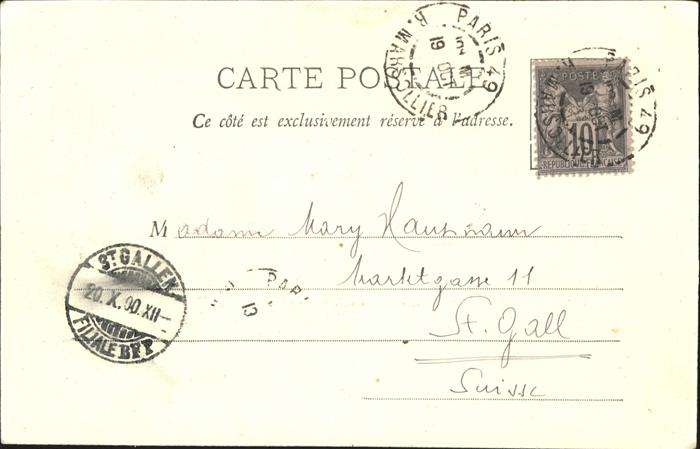 CARTE POSTALE
Ce côté est exclusivement réservé à l'adresse.
R. MARSOLLIER PARIS 49
19
POSTE
10
REPUBLIQUE FRANÇAISE
PARIS 49
Madame Mary Hausmann
Marktgasse 11
St. Gall
Suisse
ST. GALLEN
20. X. 90. XII–
FILIALE BFP
PAR
19